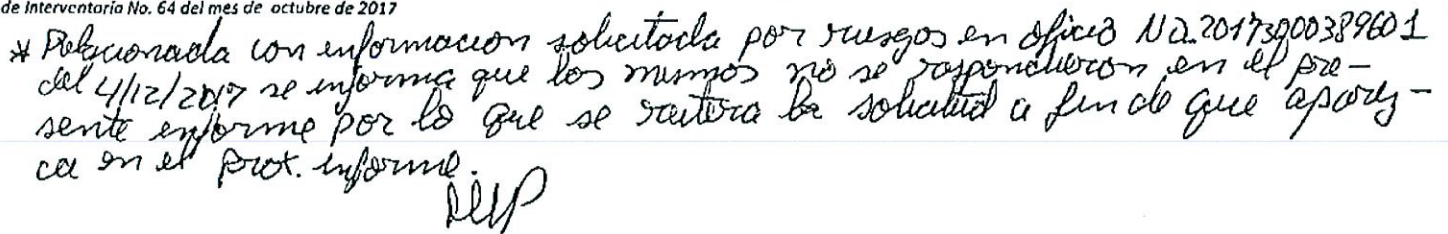 de Interventoria No. 64 del mes de octubre de 2017
* Relacionada con informacion solicitada por riesgos en oficio No. 20173000389601
del 4/12/2017 se informa que los mismos no se respondieron en el pre-
sente informe por lo que se reitera la solicitud a fin de que aparez-
ca en el prox. informe.